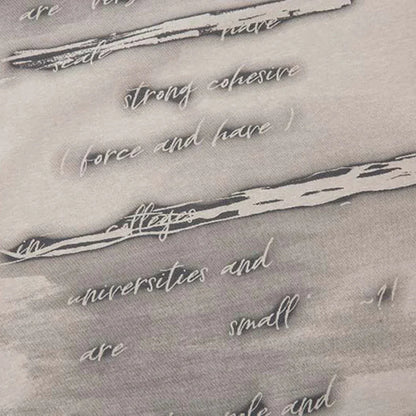 are very
scale have
strong cohesive
( force and have )
in colleges
universities and
are small ~11
and